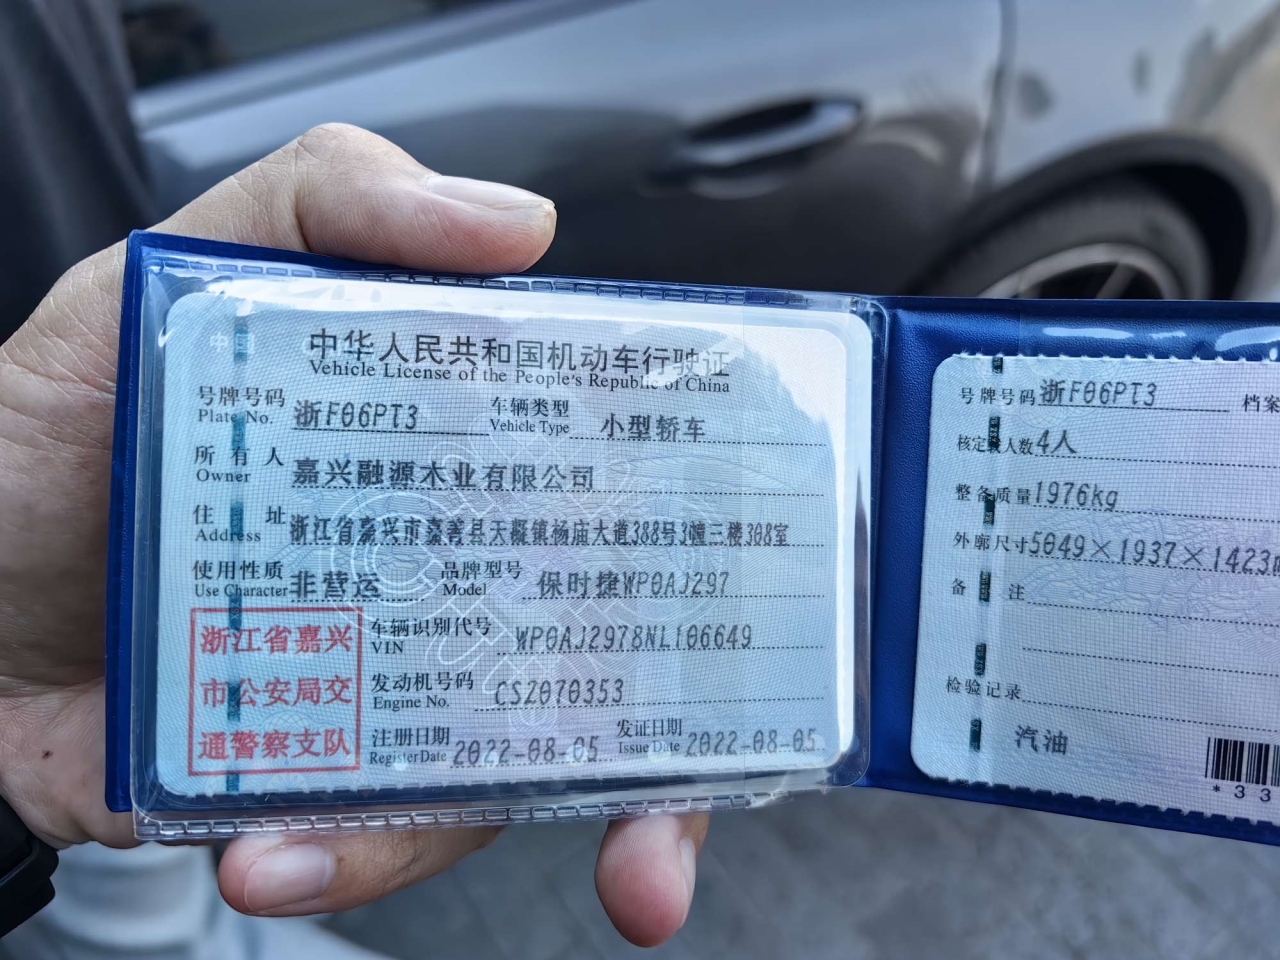 中华人民共和国机动车行驶证
Vehicle License of the People's Republic of China
号牌号码 浙F06PT3 车辆类型 小型轿车
Plate No. Vehicle Type
所有人 嘉兴融源木业有限公司
Owner
住址 浙江省嘉兴市嘉善县天凝镇杨庙大道388号3幢三楼308室
Address
使用性质 非营运 品牌型号 保时捷WP0AJ297
Use Character Model
浙江省嘉兴
市公安局交
通警察支队
车辆识别代号 WP0AJ2978NL106649
VIN
发动机号码 CSZ070353
Engine No.
注册日期 2022-08-05 发证日期 2022-08-05
Register Date Issue Date
号牌号码 浙F06PT3 档案
核定载人数 4人
整备质量 1976kg
外廓尺寸 5049×1937×1423
备注
检验记录
汽油
*33